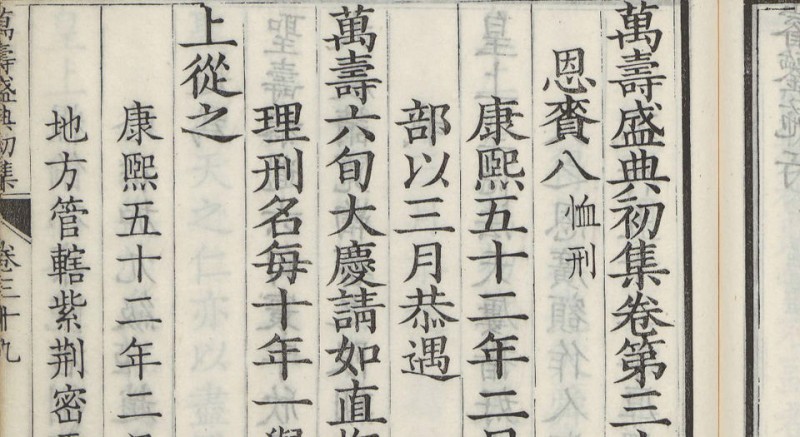 萬壽盛典初集卷第三
恩賚八 恤刑
康熙五十二年二
部以三月恭遇
萬壽六旬大慶請如直
理刑名每十年一
上從之
康熙五十二年二
地方管轄紫荆密
萬壽盛典初集 卷三十九